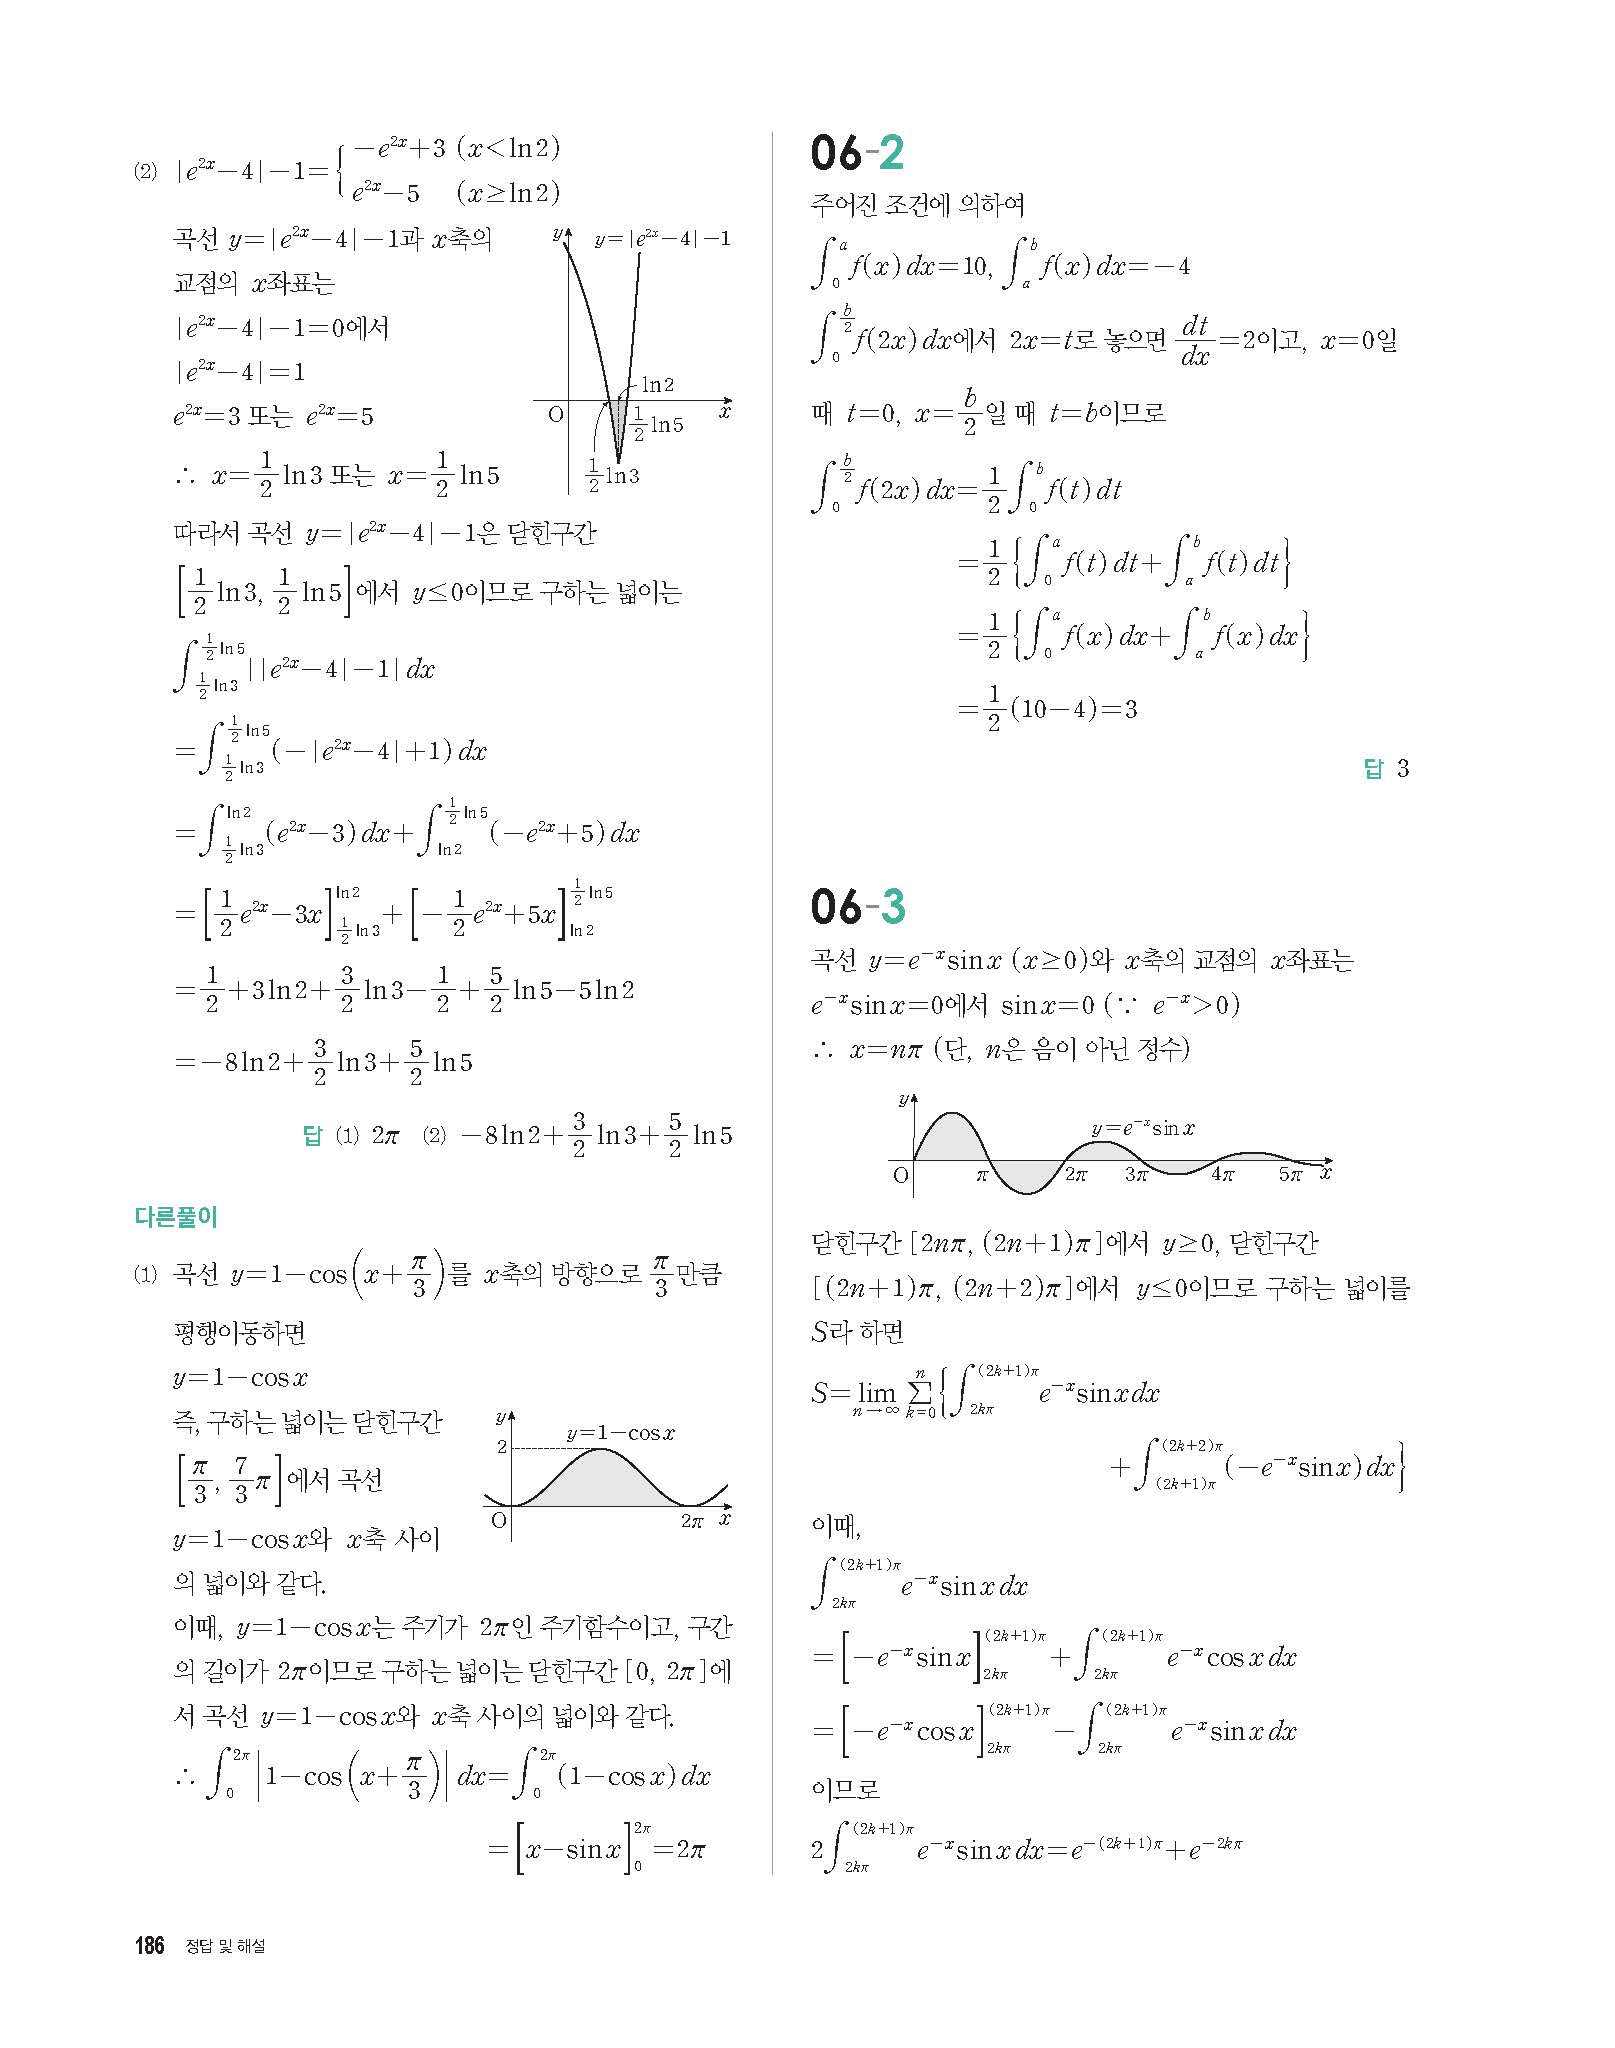 (2) |e^{2x}-4|-1={ -e^{2x}+3 (x<ln2)
e^{2x}-5 (x≥ln2)
곡선 y=|e^{2x}-4|-1과 x축의
교점의 x좌표는
|e^{2x}-4|-1=0에서
|e^{2x}-4|=1
e^{2x}=3 또는 e^{2x}=5
∴ x=\frac{1}{2}ln3 또는 x=\frac{1}{2}ln5
y
y=|e^{2x}-4|-1
ln2
O
\frac{1}{2}ln5
x
\frac{1}{2}ln3
따라서 곡선 y=|e^{2x}-4|-1은 닫힌구간
[\frac{1}{2}ln3, \frac{1}{2}ln5]에서 y≤0이므로 구하는 넓이는
∫_{\frac{1}{2}ln3}^{\frac{1}{2}ln5} ||e^{2x}-4|-1|dx
=∫_{\frac{1}{2}ln3}^{\frac{1}{2}ln5} (-|e^{2x}-4|+1)dx
=∫_{\frac{1}{2}ln3}^{ln2} (e^{2x}-3)dx+∫_{ln2}^{\frac{1}{2}ln5} (-e^{2x}+5)dx
=[\frac{1}{2}e^{2x}-3x]_{\frac{1}{2}ln3}^{ln2}+[-\frac{1}{2}e^{2x}+5x]_{ln2}^{\frac{1}{2}ln5}
=\frac{1}{2}+3ln2+\frac{3}{2}ln3-\frac{1}{2}+\frac{5}{2}ln5-5ln2
=-8ln2+\frac{3}{2}ln3+\frac{5}{2}ln5
답 (1) 2π (2) -8ln2+\frac{3}{2}ln3+\frac{5}{2}ln5
다른풀이
(1) 곡선 y=1-cos(x+\frac{π}{3})를 x축의 방향으로 \frac{π}{3}만큼
평행이동하면
y=1-cosx
즉, 구하는 넓이는 닫힌구간
[\frac{π}{3}, \frac{7}{3}π]에서 곡선
y=1-cosx와 x축 사이
의 넓이와 같다.
y
2
y=1-cosx
O
2π
x
이때, y=1-cosx는 주기가 2π인 주기함수이고, 구간
의 길이가 2π이므로 구하는 넓이는 닫힌구간 [0, 2π]에
서 곡선 y=1-cosx와 x축 사이의 넓이와 같다.
∴ ∫_{0}^{2π} |1-cos(x+\frac{π}{3})|dx=∫_{0}^{2π} (1-cosx)dx
=[x-sinx]_{0}^{2π}=2π
06-2
주어진 조건에 의하여
∫_{0}^{a} f(x)dx=10, ∫_{a}^{b} f(x)dx=-4
∫_{0}^{\frac{b}{2}} f(2x)dx에서 2x=t로 놓으면 \frac{dt}{dx}=2이고, x=0일
때 t=0, x=\frac{b}{2}일 때 t=b이므로
∫_{0}^{\frac{b}{2}} f(2x)dx=\frac{1}{2}∫_{0}^{b} f(t)dt
=\frac{1}{2}{∫_{0}^{a} f(t)dt+∫_{a}^{b} f(t)dt}
=\frac{1}{2}{∫_{0}^{a} f(x)dx+∫_{a}^{b} f(x)dx}
=\frac{1}{2}(10-4)=3
답 3
06-3
곡선 y=e^{-x}sinx (x≥0)와 x축의 교점의 x좌표는
e^{-x}sinx=0에서 sinx=0 (∵ e^{-x}>0)
∴ x=nπ (단, n은 음이 아닌 정수)
y
y=e^{-x}sinx
O
π
2π
3π
4π
5π
x
닫힌구간 [2nπ, (2n+1)π]에서 y≥0, 닫힌구간
[(2n+1)π, (2n+2)π]에서 y≤0이므로 구하는 넓이를
S라 하면
S=lim_{n→∞} Σ_{k=0}^{n} {∫_{2kπ}^{(2k+1)π} e^{-x}sinxdx
+∫_{(2k+1)π}^{(2k+2)π} (-e^{-x}sinx)dx}
이때,
∫_{2kπ}^{(2k+1)π} e^{-x}sinxdx
=[-e^{-x}sinx]_{2kπ}^{(2k+1)π}+∫_{2kπ}^{(2k+1)π} e^{-x}cosxdx
=[-e^{-x}cosx]_{2kπ}^{(2k+1)π}-∫_{2kπ}^{(2k+1)π} e^{-x}sinxdx
이므로
2∫_{2kπ}^{(2k+1)π} e^{-x}sinxdx=e^{-(2k+1)π}+e^{-2kπ}
186 정답 및 해설